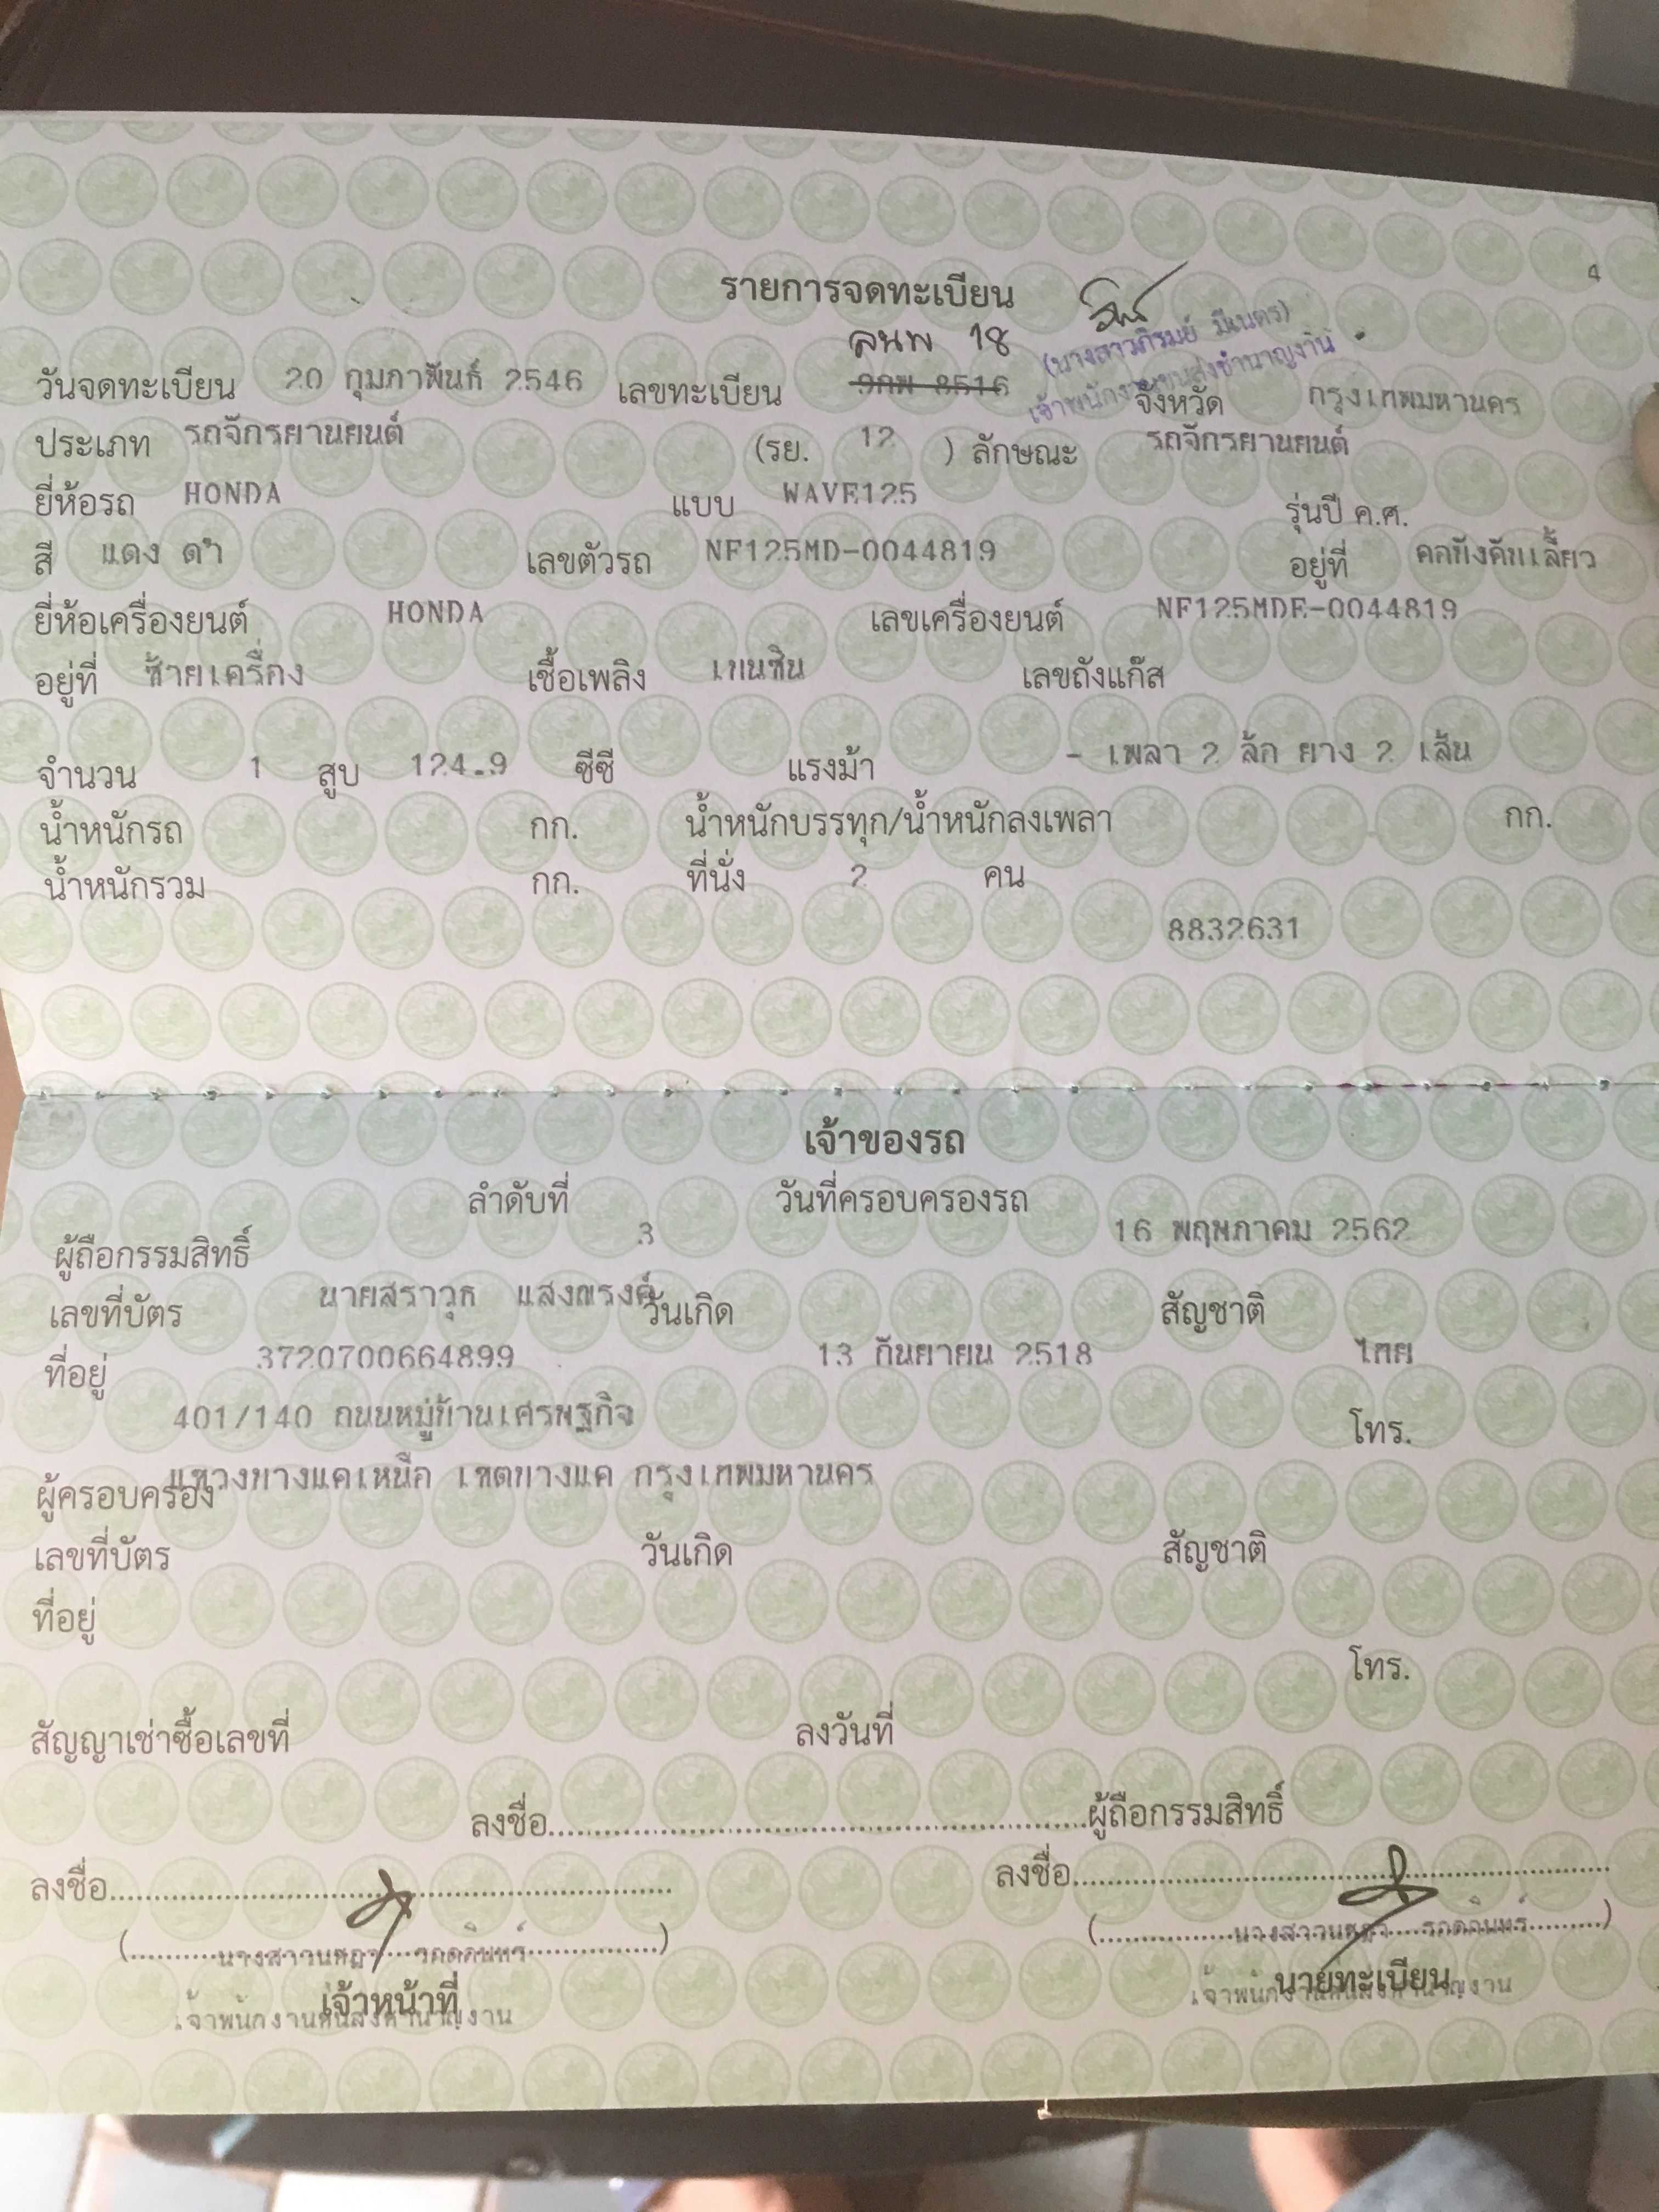 4
รายการจดทะเบียน
ลนพ 18
(นางสาวภิรมย์ มีเนตร)
เจ้าพนักงานขนส่งชำนาญงาน
วันจดทะเบียน 20 กุมภาพันธ์ 2546 เลขทะเบียน 9กพ 8516 จังหวัด กรุงเทพมหานคร
ประเภท รถจักรยานยนต์ (รย. 12 ) ลักษณะ รถจักรยานยนต์
ยี่ห้อรถ HONDA แบบ WAVE125 รุ่นปี ค.ศ.
สี แดง ดำ เลขตัวรถ NF125MD-0044819 อยู่ที่ คอบังคับเลี้ยว
ยี่ห้อเครื่องยนต์ HONDA เลขเครื่องยนต์ NF125MDE-0044819
อยู่ที่ ซ้ายเครื่อง เชื้อเพลิง เบนซิน เลขถังแก๊ส
จำนวน 1 สูบ 124.9 ซีซี แรงม้า - เพลา 2 ล้อ ยาง 2 เส้น
น้ำหนักรถ กก. น้ำหนักบรรทุก/น้ำหนักลงเพลา กก.
น้ำหนักรวม กก. ที่นั่ง 2 คน
8832631
เจ้าของรถ
ลำดับที่ 3 วันที่ครอบครองรถ 16 พฤษภาคม 2562
ผู้ถือกรรมสิทธิ์ นายสราวุธ แสงณรงค์
เลขที่บัตร 3720700664899 วันเกิด 13 กันยายน 2518 สัญชาติ ไทย
ที่อยู่ 401/140 ถนนหมู่บ้านเศรษฐกิจ โทร.
แขวงบางแคเหนือ เขตบางแค กรุงเทพมหานคร
ผู้ครอบครอง
เลขที่บัตร วันเกิด สัญชาติ
ที่อยู่
โทร.
สัญญาเช่าซื้อเลขที่ ลงวันที่
ลงชื่อ........................................ผู้ถือกรรมสิทธิ์
ลงชื่อ........................................ ลงชื่อ........................................
(.........นางสาว.........) (.........นางสาว.........)
เจ้าหน้าที่ นายทะเบียน
เจ้าพนักงานขนส่งชำนาญงาน เจ้าพนักงานขนส่งชำนาญงาน